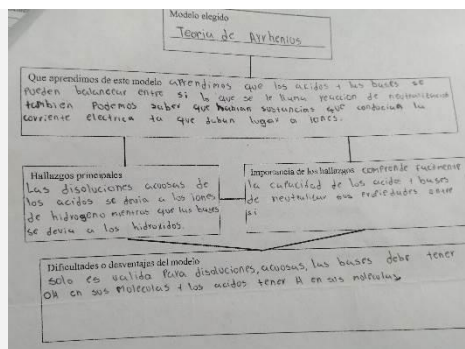 Modelo elegido
Teoria de Arrhenios
Que aprendimos de este modelo aprendimos que los acidos y las bases se
pueden balancear entre si lo que se le llama reacion de neutralizacion
tambien Podemos saber que habian sustancias que conducian la
corriente electrica ya que daban lugar a iones.
Hallazgos principales
Las disoluciones acuosas de
los acidos se devia a los iones
de hidrogeno mientras que las bases
se devia a los hidroxidos.
Importancia de los hallazgos comprende facilmente
la capacidad de los acidos y bases
de neutralizar sus propiedades entre
si
Dificultades o desventajas del modelo
solo es valida para disoluciones, acuosas, las bases debe tener
OH en sus moleculas y los acidos tener H en sus moleculas